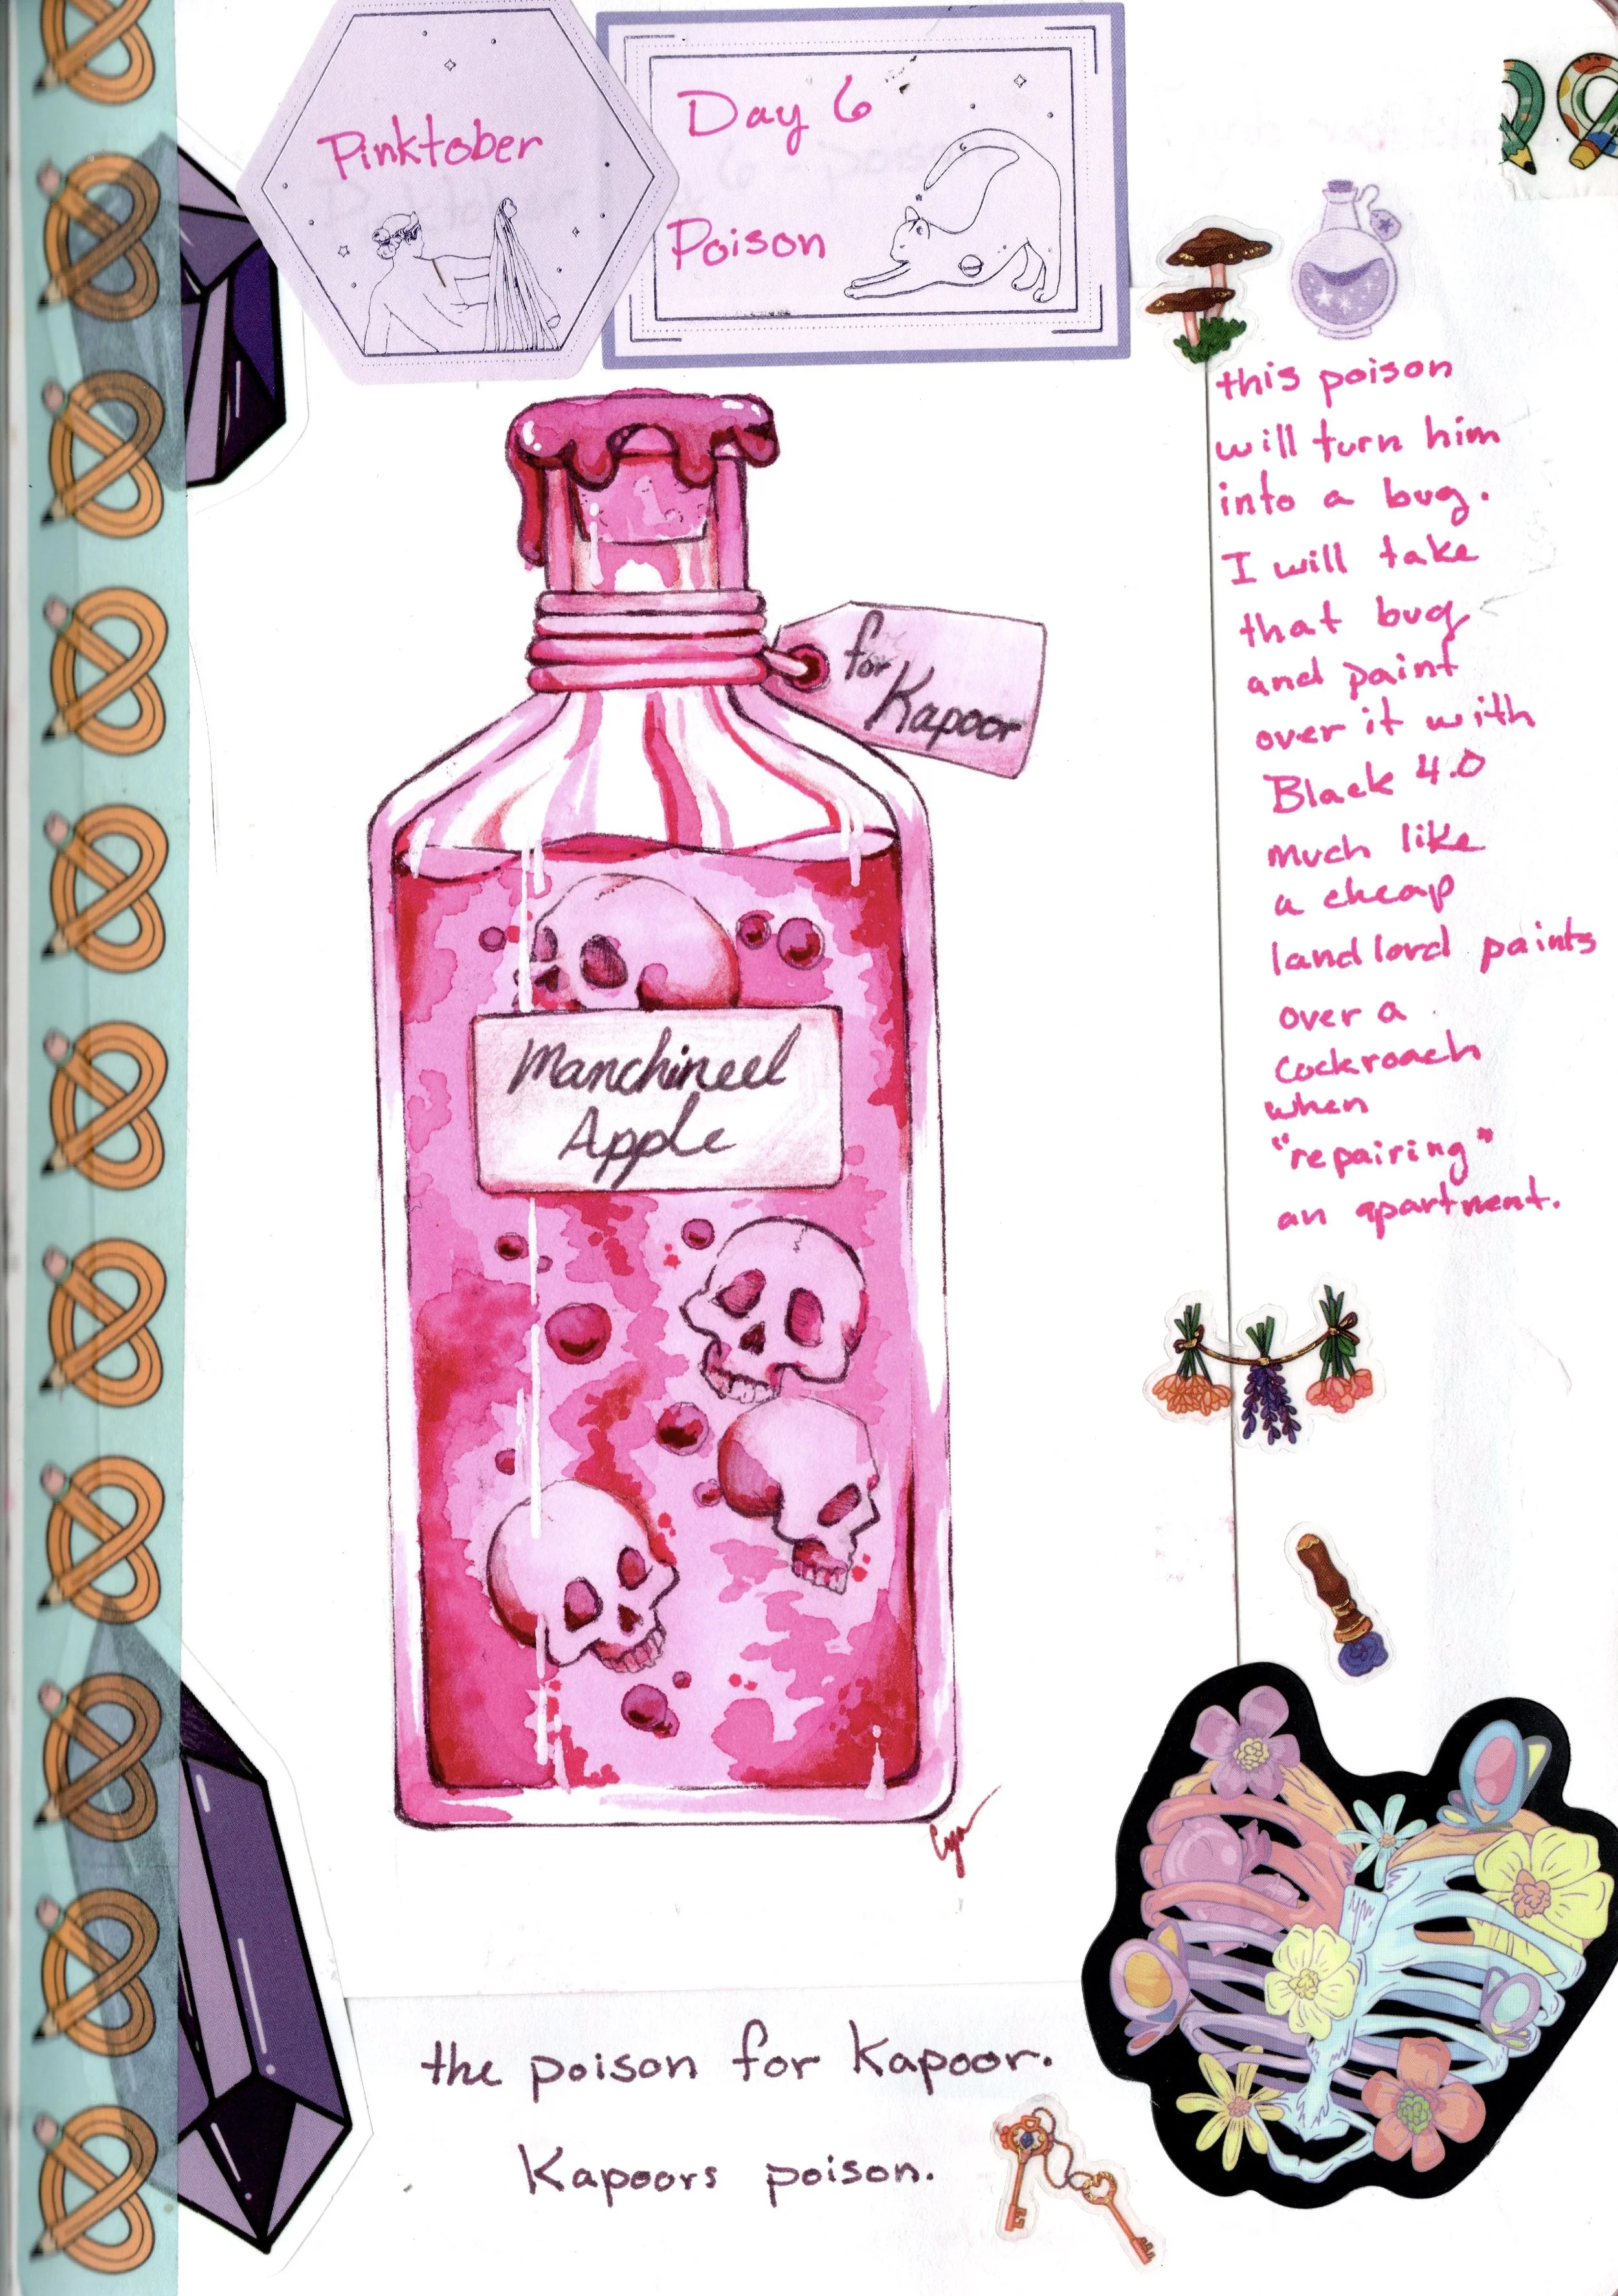 Pinktober
Day 6
Poison
this poison
will turn him
into a bug.
I will take
that bug
and paint
over it with
Black 4.0
much like
a cheap
landlord paints
over a
cockroach
when
"repairing"
an apartment.
for
Kapoor
Manchineel
Apple
the poison for Kapoor.
Kapoors poison.